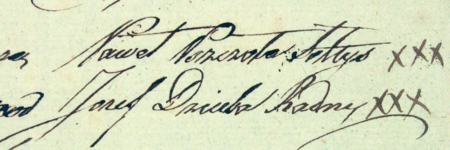 Paweł Pszczoła Sołtys xxx
Jozef Dziuba Radny xxx